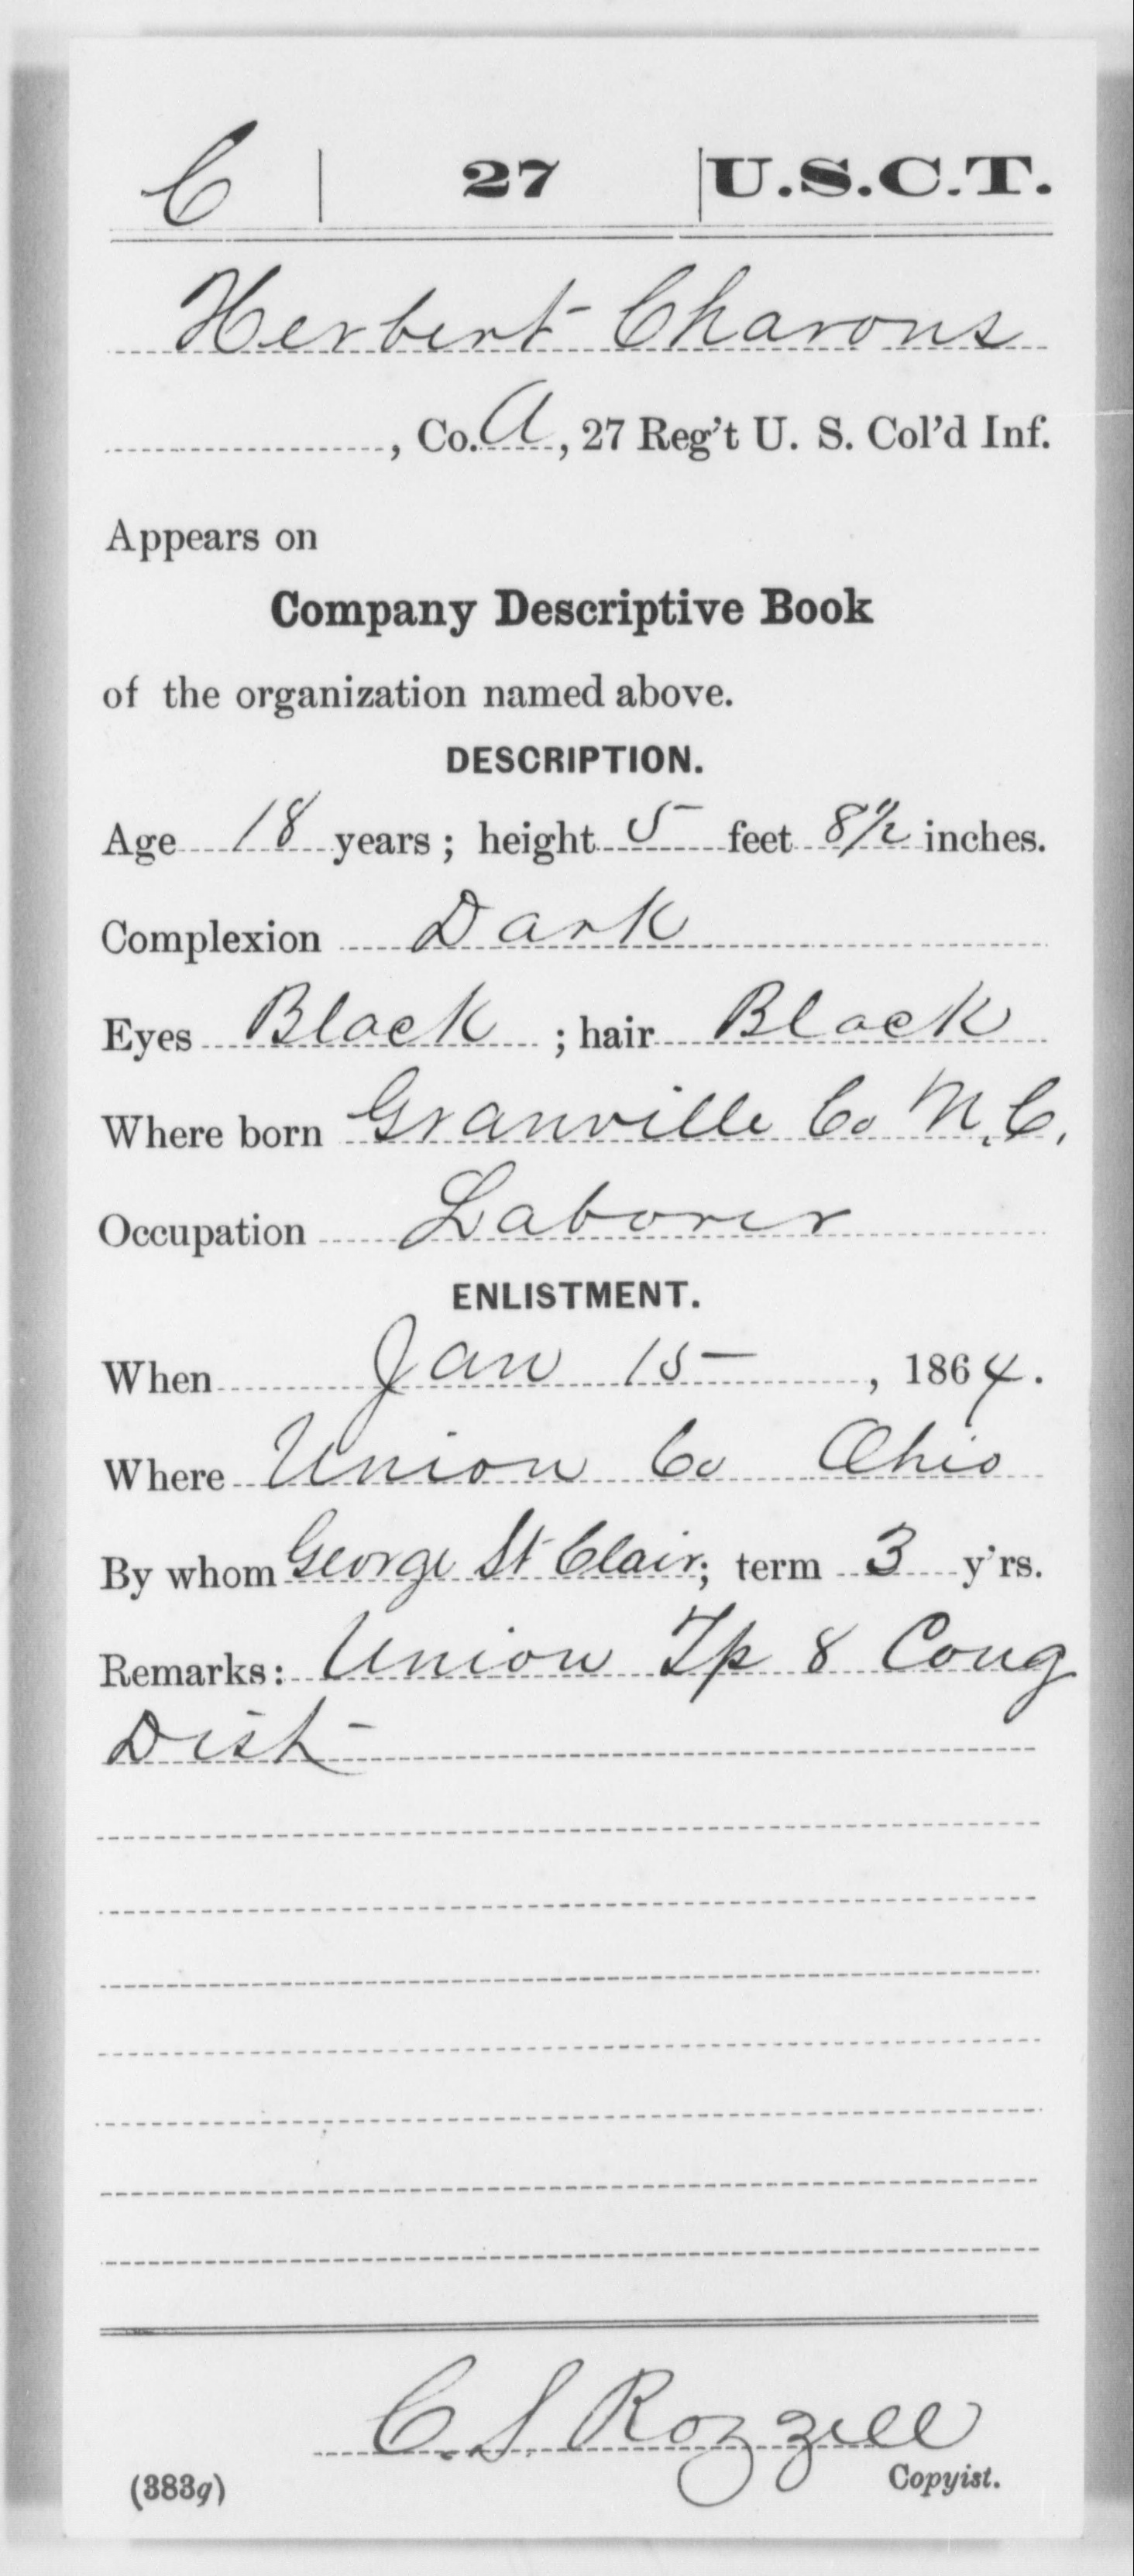 C | 27 | U.S.C.T.
Herbert Charons
, Co. A, 27 Reg't U. S. Col'd Inf.
Appears on
Company Descriptive Book
of the organization named above.
DESCRIPTION.
Age 18 years; height 5 feet 8 1/2 inches.
Complexion Dark
Eyes Black; hair Black
Where born Granville Co N.C.
Occupation Laborer
ENLISTMENT.
When Jan 15, 1864.
Where Union Co Ohio
By whom George St Clair; term 3 y'rs.
Remarks: Union Tp 8 Cong
Dist
C. S Rozzell
Copyist.
(383g)